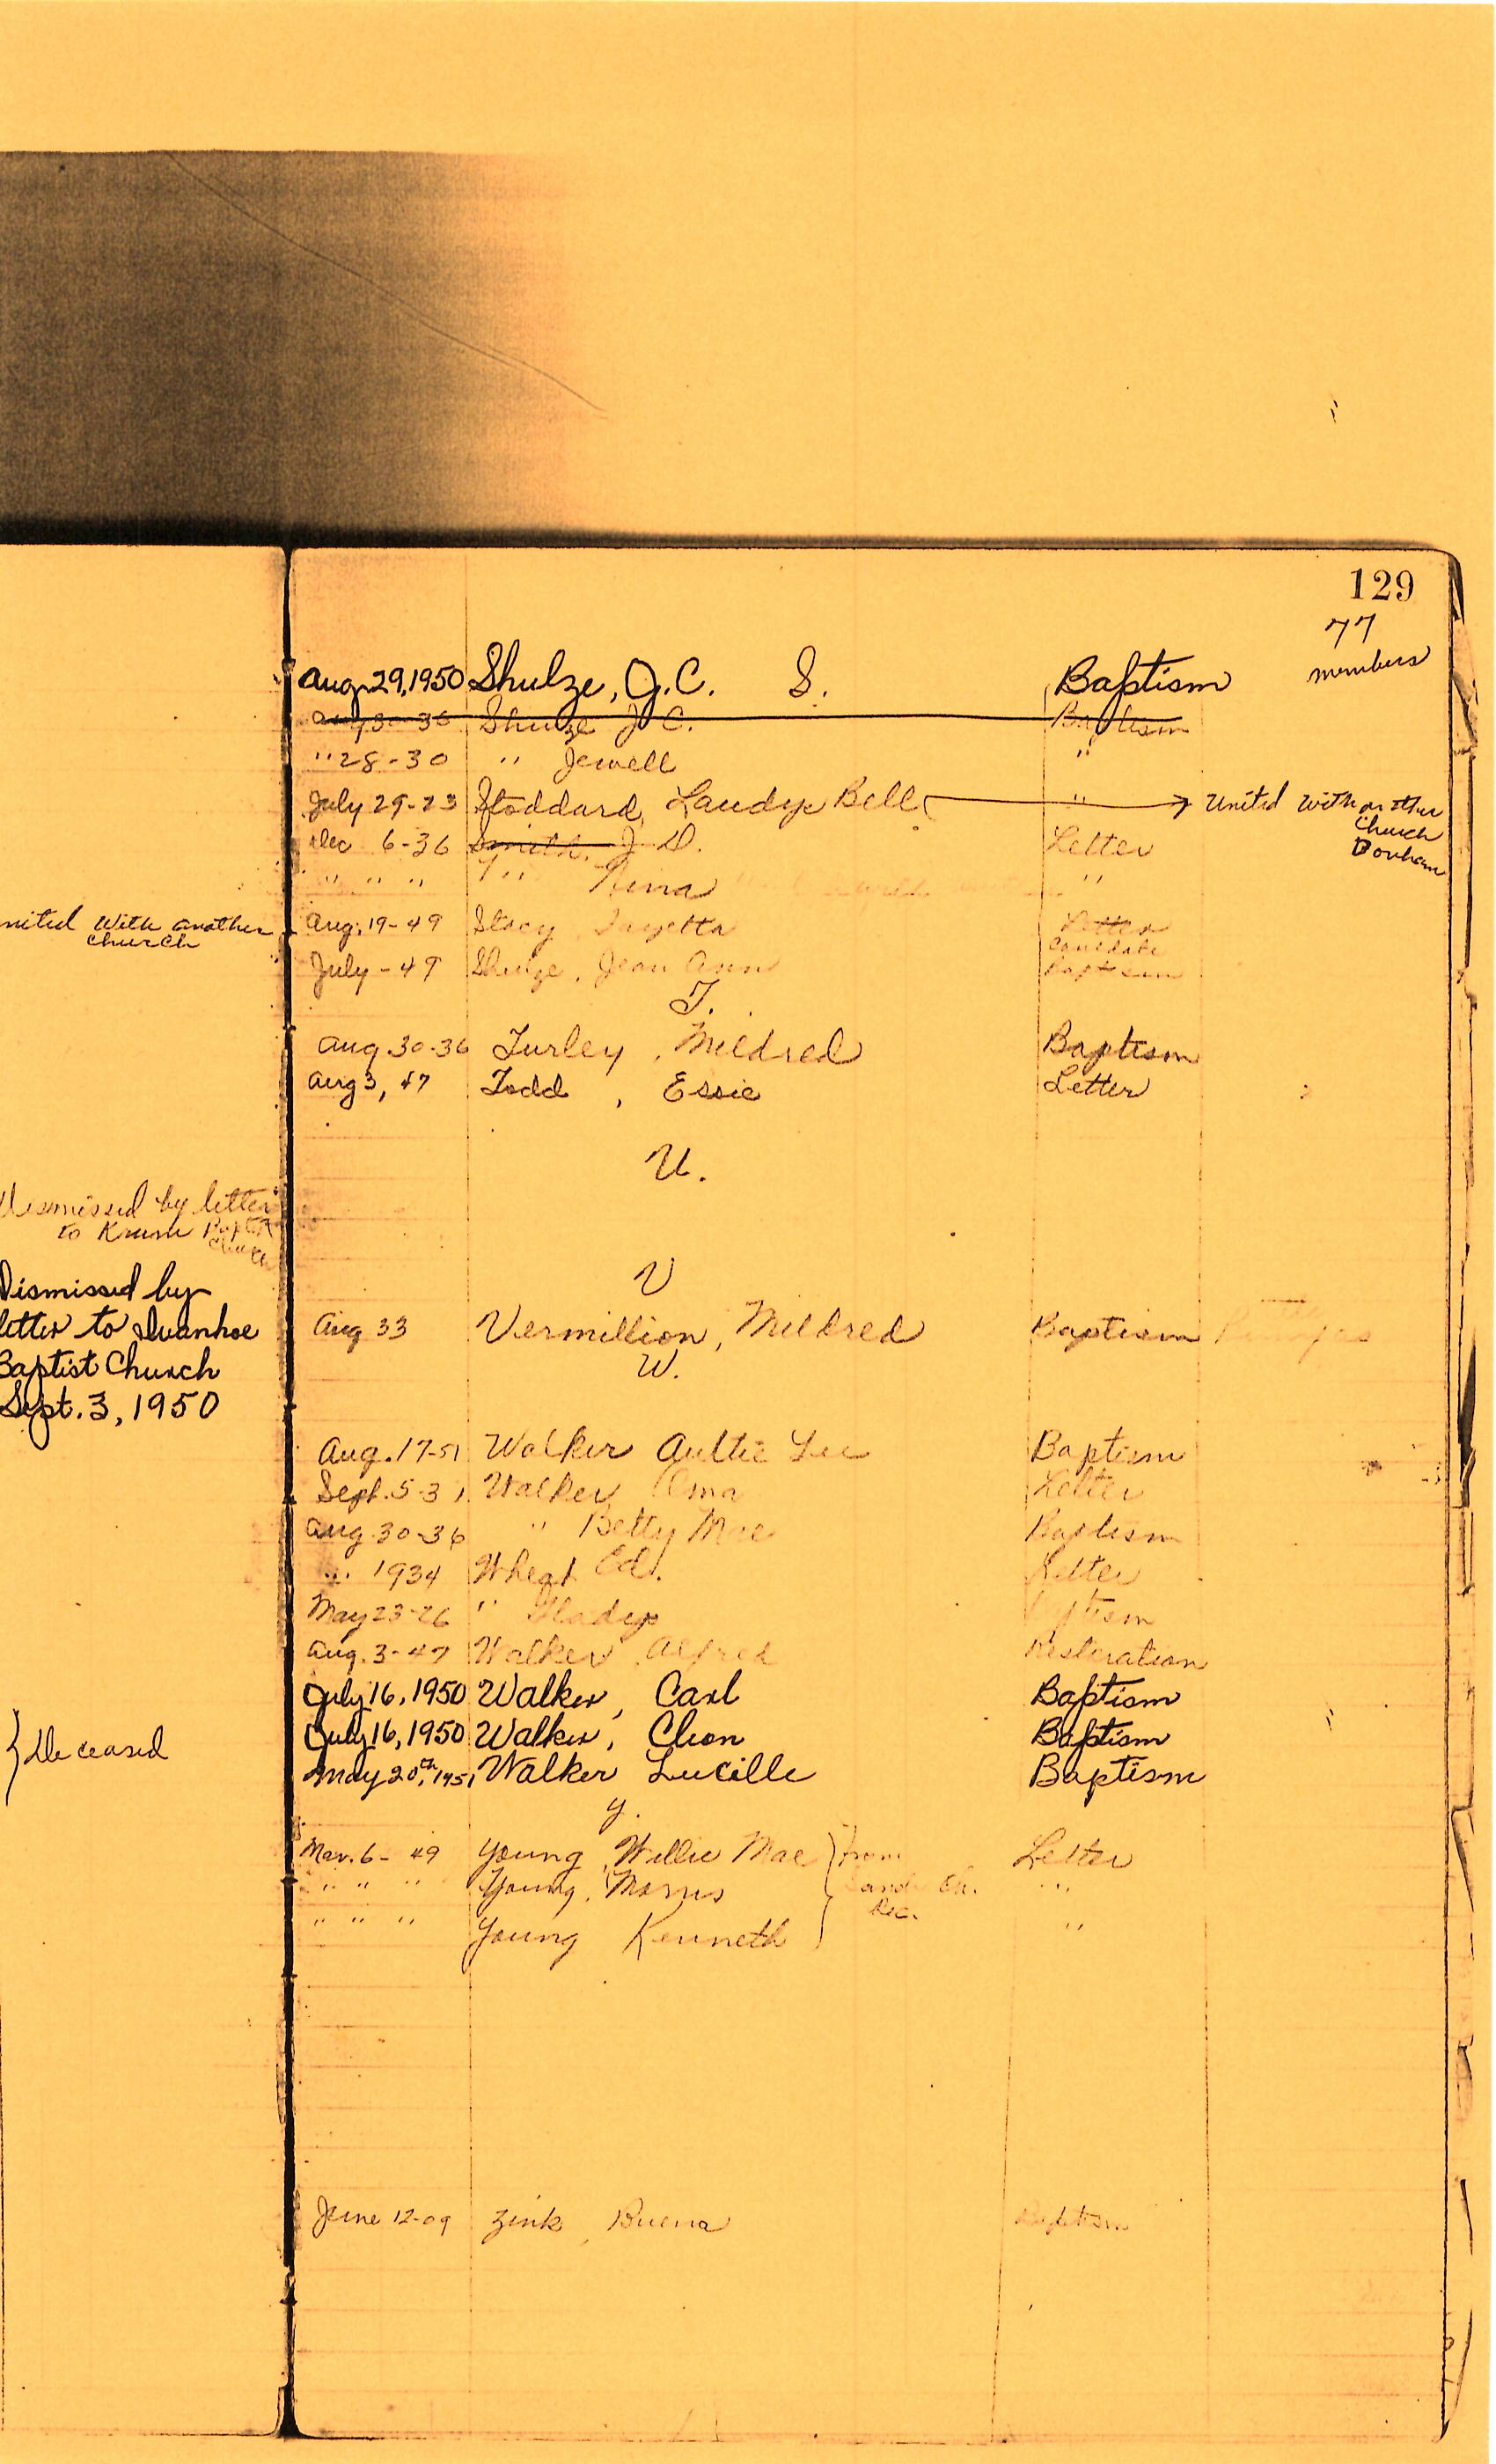 129
77
members
Aug. 29, 1950 Shulze, J.C. S. Baptism
Aug 30-36 Shulze J C. Baptism
" 28-30 " Jewell "
July 29-23 Stoddard, Laudye Bell " United with another
Church
Bonham
Dec 6-36 Smith, J. D. Letter
" " " " Nina "
Aug. 19-49 Stacy, Letter
July - 49 Shulze, Jean Ann Candidate
Baptism
T.
Aug. 30-36 Turley, Mildred Baptism
Aug 3, 47 Todd, Essie Letter
U.
V
Aug 33 Vermillion, Mildred Baptism
W.
Aug. 17-51 Walker Aultie Lee Baptism
Sept. 5-31 Walker Letter
Aug. 30-36 " Betty Mae Baptism
" 1934 Wheat Ed. Letter
May 23-26 " Gladys Baptism
Aug. 3-47 Walker, Alfred Restoration
July 16, 1950 Walker, Carl Baptism
July 16, 1950 Walker, Cleon Baptism
May 20th, 1951 Walker Lucille Baptism
Y.
Mar. 6-49 Young, Willie Mae from Letter
" " " Young, Morris Ch. "
Rec.
" " " Young Kenneth "
June 12-09 Zink, Buena Baptism
nited with another
church
Dismissed by letter
to Krum Baptist
Church
Dismissed by
letter to Ivanhoe
Baptist Church
Sept. 3, 1950
Deceased